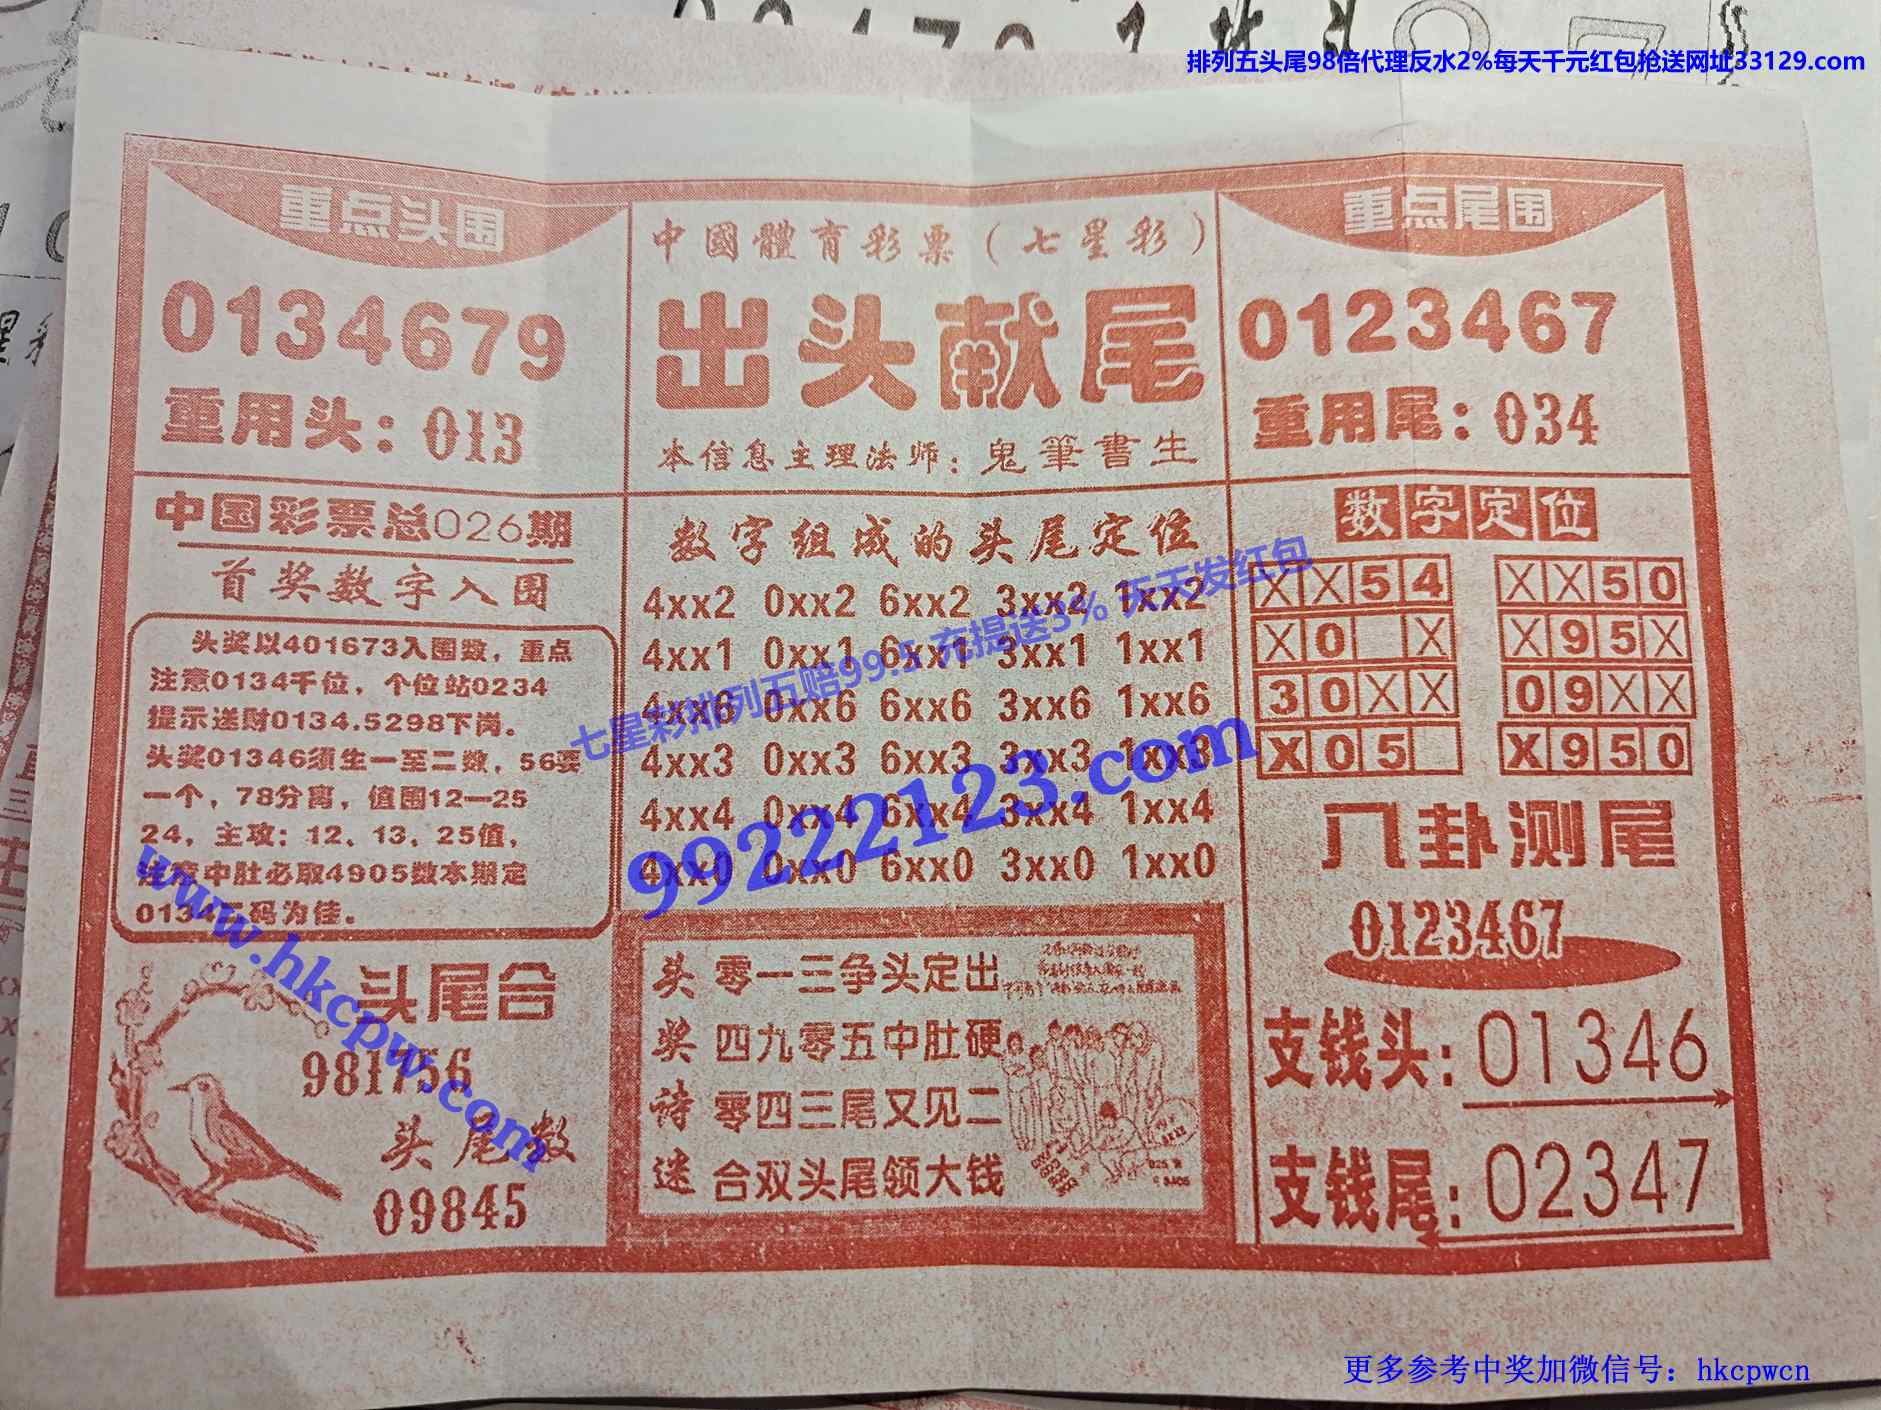 排列五头尾98倍代理反水2%每天千元红包抢送网址33129.com
重点头围
0134679
重用头：013
中國體育彩票（七星彩）
出头献尾
本信息主理法师：鬼筆書生
重点尾围
0123467
重用尾：034
中国彩票总026期
首奖数字入围
头奖以401673入围数，重点
注意0134千位，个位站0234
提示送财0134.5298下岗。
头奖01346须生一至二数，56要
一个，78分离，值围12—25
24，主攻：12、13、25值，
注意中肚必取4905数本期定
0134二码为佳。
头尾合
981756
头尾数
09845
数字组成的头尾定位
4xx2 0xx2 6xx2 3xx2 1xx2
4xx1 0xx1 6xx1 3xx1 1xx1
4xx6 0xx6 6xx6 3xx6 1xx6
4xx3 0xx3 6xx3 3xx3 1xx3
4xx4 0xx4 6xx4 3xx4 1xx4
4xx0 0xx0 6xx0 3xx0 1xx0
七星彩排列五赔99.5 充提送3% 天天发红包
99222123.com
www.hkcpw.com
头奖诗迷
零一三争头定出
四九零五中肚硬
零四三尾又见二
合双头尾领大钱
数字定位
XX54 XX50
X0 X X95X
30XX 09XX
X05 X950
八卦测尾
0123467
支钱头：01346
支钱尾：02347
更多参考中奖加微信号：hkcpwcn